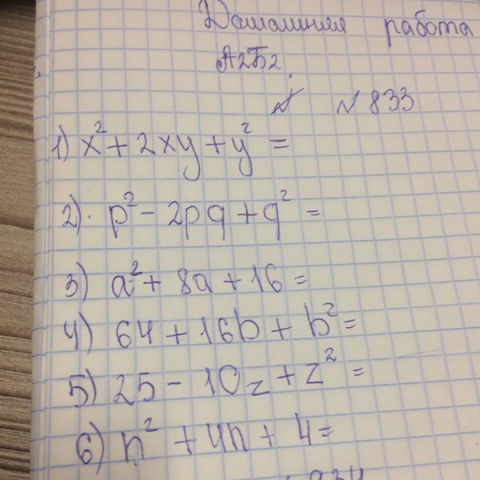 Домашняя работа
А2Б2.
№ 833
1) x² + 2xy + y² =
2) p² - 2pq + q² =
3) a² + 8a + 16 =
4) 64 + 16b + b² =
5) 25 - 10z + z² =
6) n² + 4n + 4 =